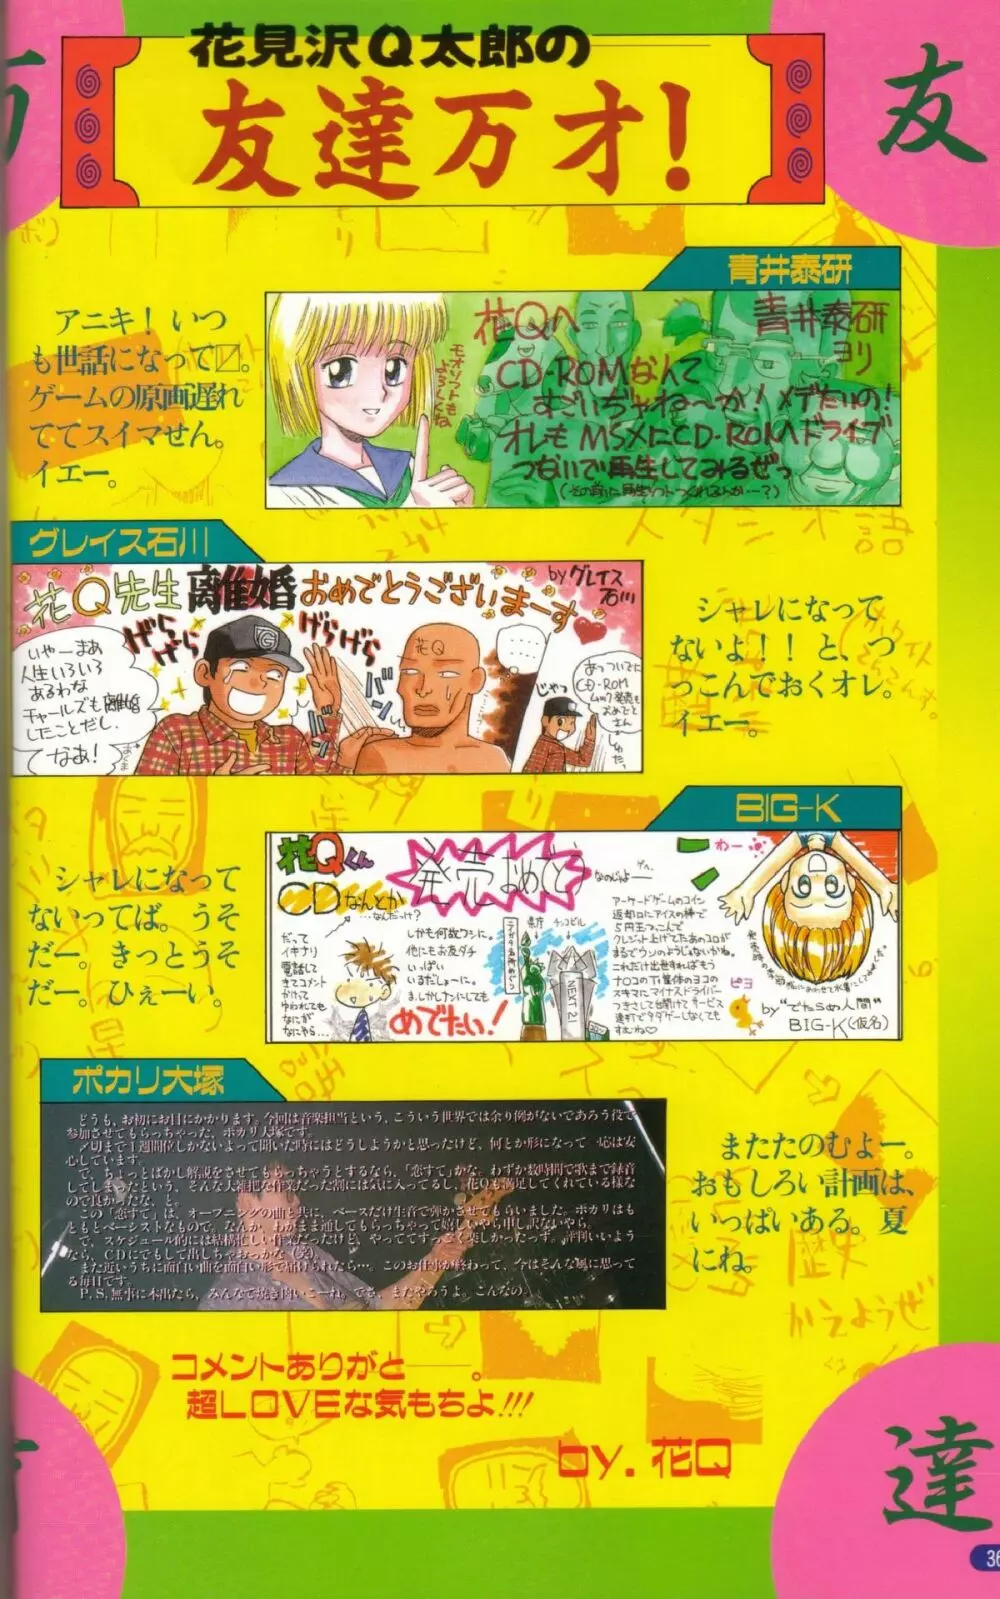 花見沢Q太郎の
友達万才!
友
青井泰研
アニキ! いつ
も世話になって〼。
ゲームの原画遅れ
ててスイマせん。
イエー。
花Qへ
青井泰研
ヨリ
モオソフトも
よろしくね
CD-ROMなんて
すごいぢゃね〜か! メデたいの!
オレも MSXにCD-ROMドライブ
つないで再生してみるぜっ
グレイス石川
花Q先生 離婚 おめでとうございまーす
by グレイス
石川
げらげら
げらげら
いやーまあ
人生いろいろ
あるわな
チャールズも離婚
したことだし、
なあ!
バン
バン
花Q
じゃっ
あっついでに
CD-ROM
ムック発売も
おめでと
さん
シャレになって
ないよ!! と、つ
っこんでおくオレ。
イエー。
BIG-K
花Qくん
CDなんとか
…なんだっけ?
発売おめでとう
なのじゃよ
だって
イキナリ
電話して
きてコメント
かいて
ゆわれても
なにが
なにやら…
しかも何故ワシに。
他にもお友ダチ
いっぱい
いるだしょーに。
ま、しかしナンにしても
めでたい!
県庁
NEXT21
アーケードゲームのコイン
返却口にアイスの棒で
5円玉つっこんで
クレジット上げてたあのコロが
まるでウソのようじゃないかね。
これだけ出世すればもう
ナロコのTi筐体のヨコの
スキマにマイナスドライバー
つきさして台開けてサービス
連打でタダゲーしなくても
すむね♡
わー
ピヨ
by "でたらめ人間"
BIG-K(仮名)
シャレになって
ないってば。うそ
だー。きっとうそ
だー。ひぇーい。
ポカリ大塚
どうも、お初にお目にかかります。今回は音楽担当という、こういう世界では余り例がないであろう役で
参加させてもらっちゃった、ポカリ大塚です。
〆切まで1週間位しかないよって聞いた時にはどうしようかと思ったけど、何とか形になって一応は安
心しています。
で、ちょっとばかし解説をさせてもらっちゃうとするなら、「恋すて」かな。わずか数時間で歌まで録音
してしまったという、そんな大雑把な作業だった割には気に入ってるし、花Qも満足してくれている様な
ので良かったな、と。
この「恋すて」は、オープニングの曲と共に、ベースだけ生音で弾かせてもらいました。ポカリはも
ともとベーシストなもので。なんか、わがまま通してもらっちゃって嬉しいやら申し訳ないやら。
で、スケジュール的には結構忙しい作業だったけど、やっててすっごく楽しかったっす。評判いいよう
なら、CDにでもして出しちゃおっかな(笑)。
また近いうちに面白い曲を面白い形で届けられたら…。このお仕事が終わって、今はそんな風に思って
る毎日です。
P.S.無事に本出たら、みんなで焼き肉いこーね。でさ、またやろうよ。こんなの。
またたのむよー。
おもしろい計画は、
いっぱいある。夏
にね。
コメントありがと——。
超LOVEな気もちよ!!!
by. 花Q
達
36